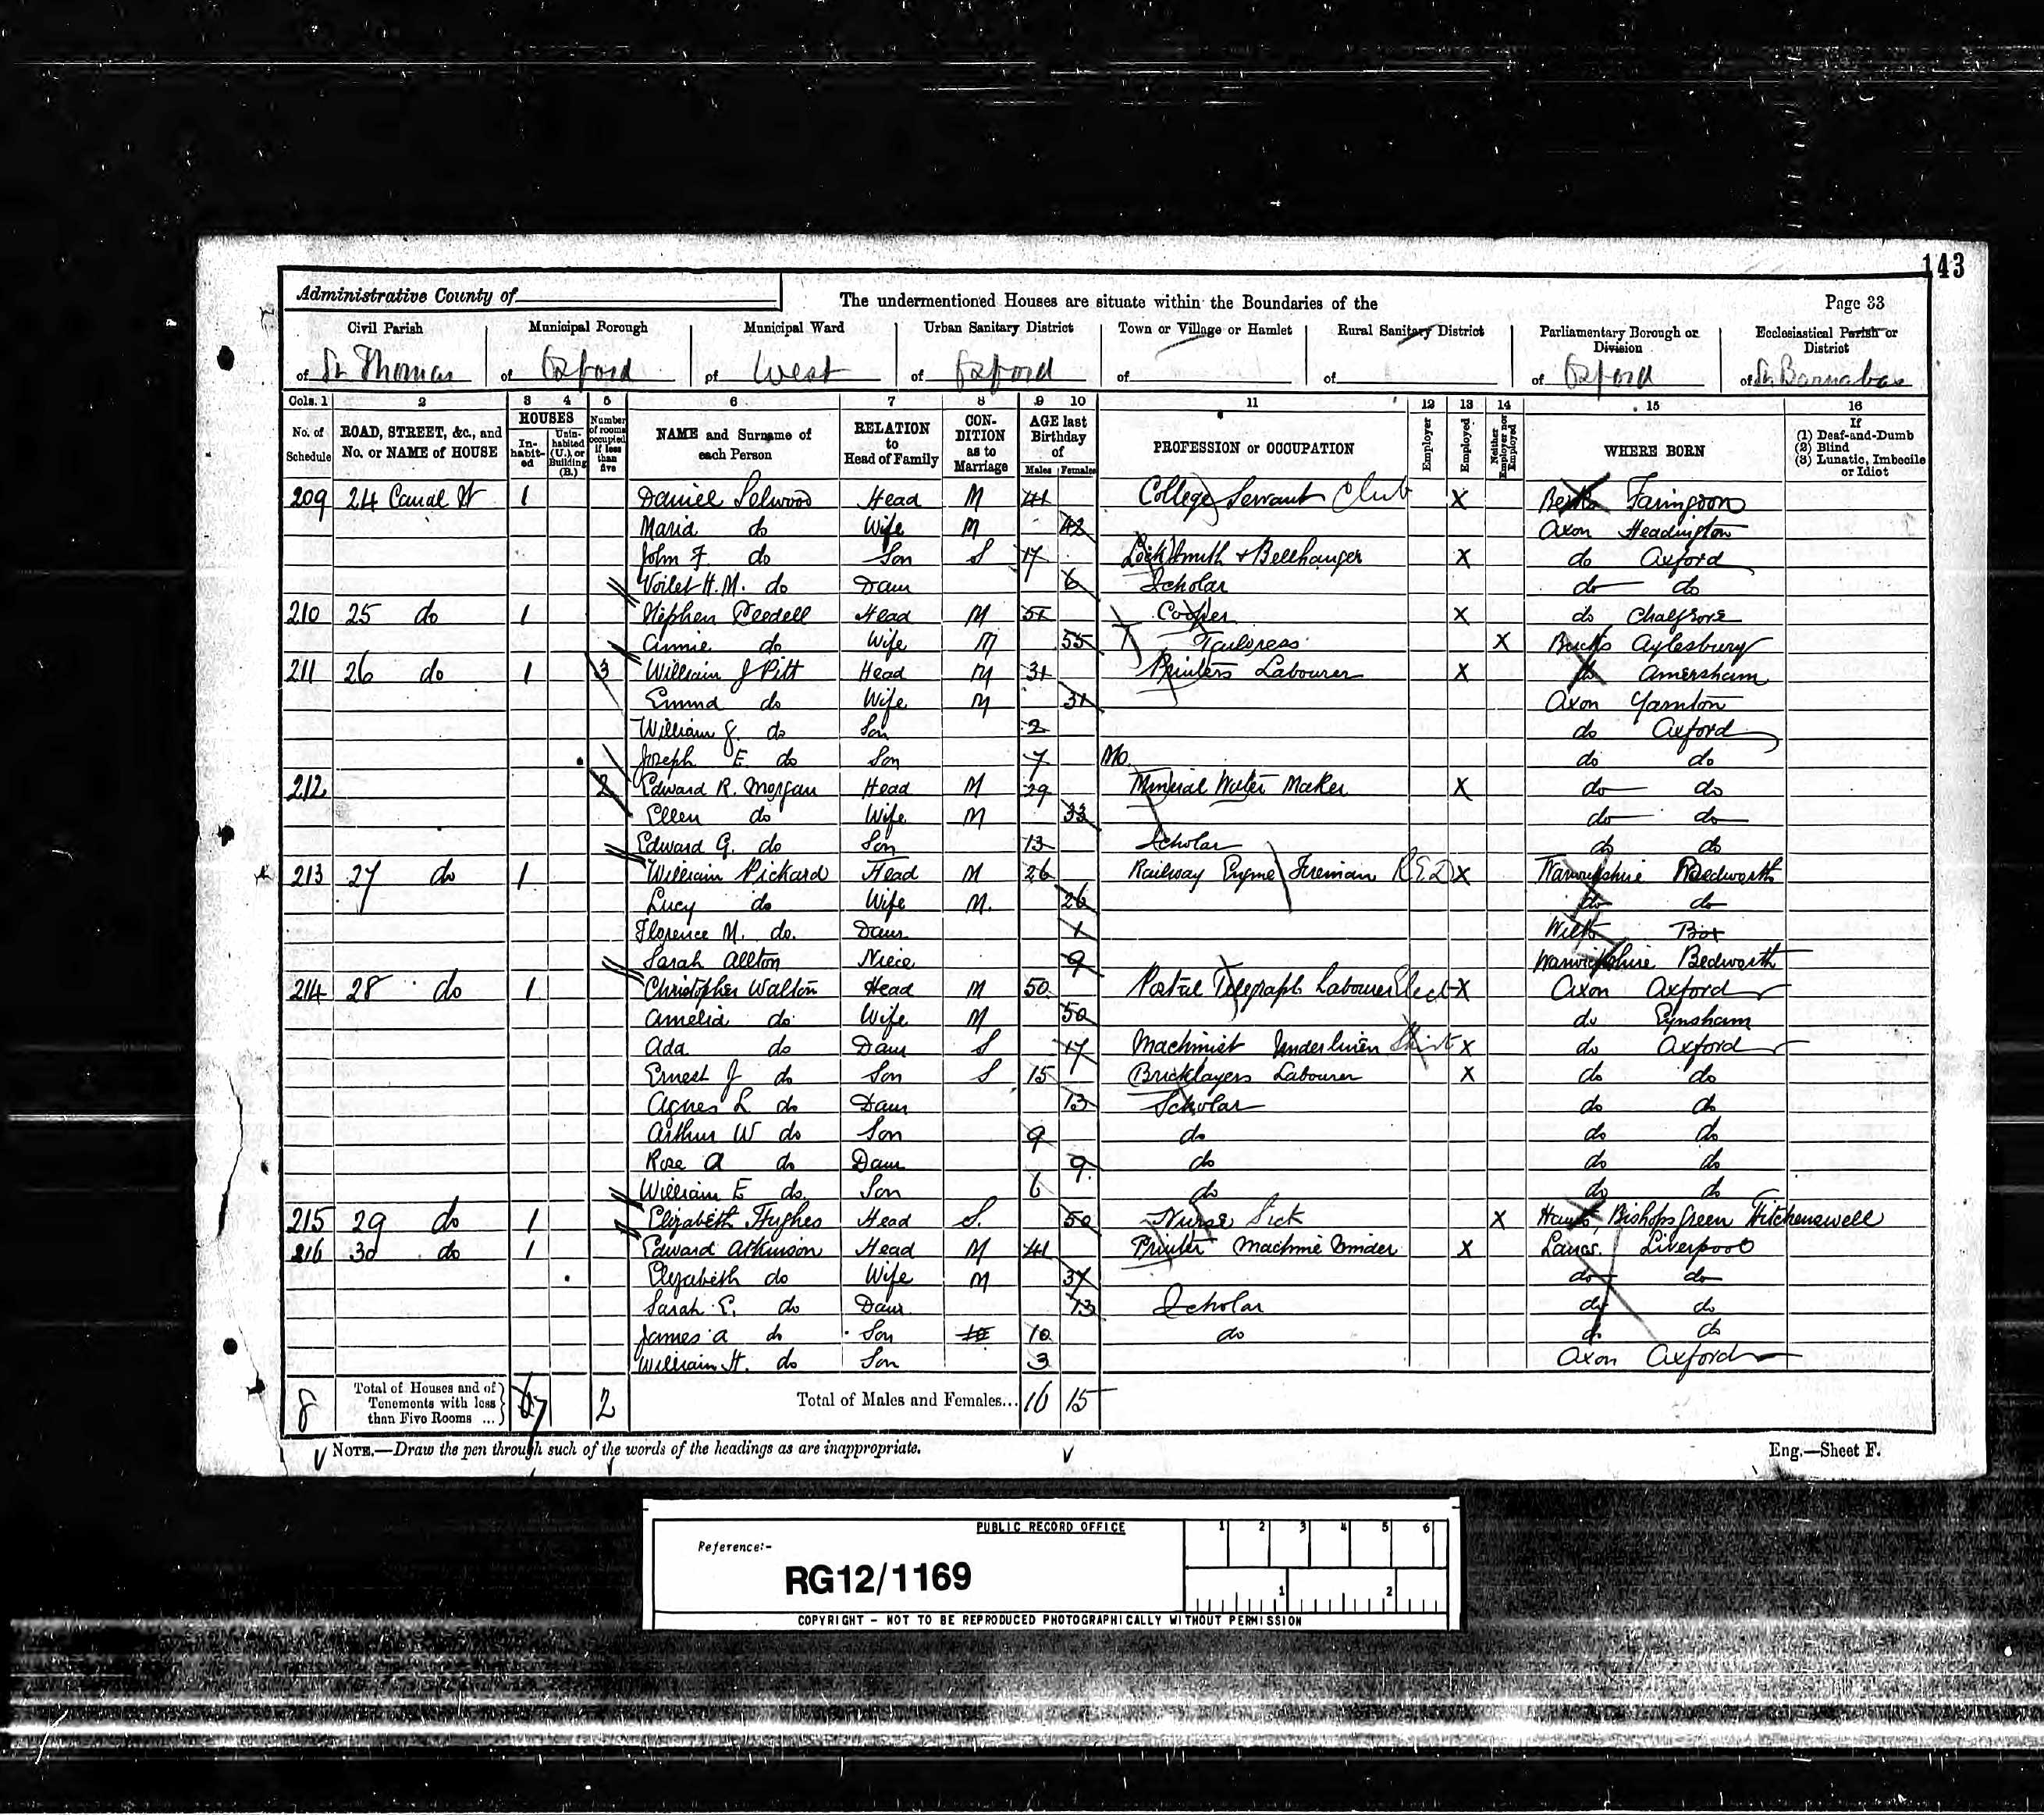 143
Administrative County of
The undermentioned Houses are situate within the Boundaries of the
Page 33
Civil Parish Municipal Borough Municipal Ward Urban Sanitary District Town or Village or Hamlet Rural Sanitary District Parliamentary Borough or Division Ecclesiastical Parish or District
of St Thomas of Oxford of West of Oxford of of of Oxford of St Barnabas
Cols. 1 2 3 4 5 6 7 8 9 10 11 12 13 14 15 16
No. of Schedule ROAD, STREET, &c., and No. or NAME of HOUSE HOUSES Inhabited Uninhabited (U.), or Building (B.) Number of rooms occupied if less than five NAME and Surname of each Person RELATION to Head of Family CONDITION as to Marriage AGE last Birthday of Males Females PROFESSION or OCCUPATION Employer Employed Neither Employer nor Employed WHERE BORN If (1) Deaf-and-Dumb (2) Blind (3) Lunatic, Imbecile or Idiot
209 24 Canal St 1 Daniel Selwood Head M 41 College Servant Club X Berks Faringdon
Maria do Wife M 42 Oxon Headington
John F. do Son S 17 Locksmith + Bellhanger X do Oxford
Voilet H. M. do Daur 6 Scholar do do
210 25 do 1 Stephen Peedell Head M 51 Cooper X do Chalgrove
Annie do Wife M 55 Tailoress X Bucks Aylesbury
211 26 do 1 3 William J Pitt Head M 31 Printers Labourer X do Amersham
Emma do Wife M 31 Oxon Yarnton
William J. do Son 2 do Oxford
Joseph E. do Son 7 Mo. do do
212 2 Edward R. Morgan Head M 29 Mineral Water Maker X do do
Ellen do Wife M 33 do do
Edward G. do Son 13 Scholar do do
213 27 do 1 William Pickard Head M 26 Railway Engine Fireman X Warwickshire Bedworth
Lucy do Wife M. 26 do do
Florence M. do. Daur 1 Wilts Box
Sarah Allton Niece 9 Warwickshire Bedworth
214 28 do 1 Christopher Walton Head M 50 Postal Telegraph Labourer Elect X Oxon Oxford
Amelia do Wife M 50 do Eynsham
Ada do Daur S 17 Machinist Underlinen Shirt X do Oxford
Ernest J do Son S 15 Bricklayers Labourer X do do
Agnes L do Daur 13 Scholar do do
Arthur W do Son 9 do do do
Rose A do Daur 9 do do do
William E do Son 6 do do do
215 29 do 1 Elizabeth Hughes Head S. 50 Nurse Sick X Hants Bishops Green Hitchenswell
216 30 do 1 Edward Atkinson Head M 41 Printer Machine Minder X Lancs. Liverpool
Elizabeth do Wife M 37 do do
Sarah E. do Daur 13 Scholar do do
James A do Son 10 do do do
William H. do Son 3 Oxon Oxford
8 Total of Houses and of Tenements with less than Five Rooms ... 7 2 Total of Males and Females... 16 15
NOTE.—Draw the pen through such of the words of the headings as are inappropriate.
Eng.—Sheet F.
PUBLIC RECORD OFFICE
1 2 3 4 5 6
Reference:-
RG12/1169
1 2
COPYRIGHT - NOT TO BE REPRODUCED PHOTOGRAPHICALLY WITHOUT PERMISSION